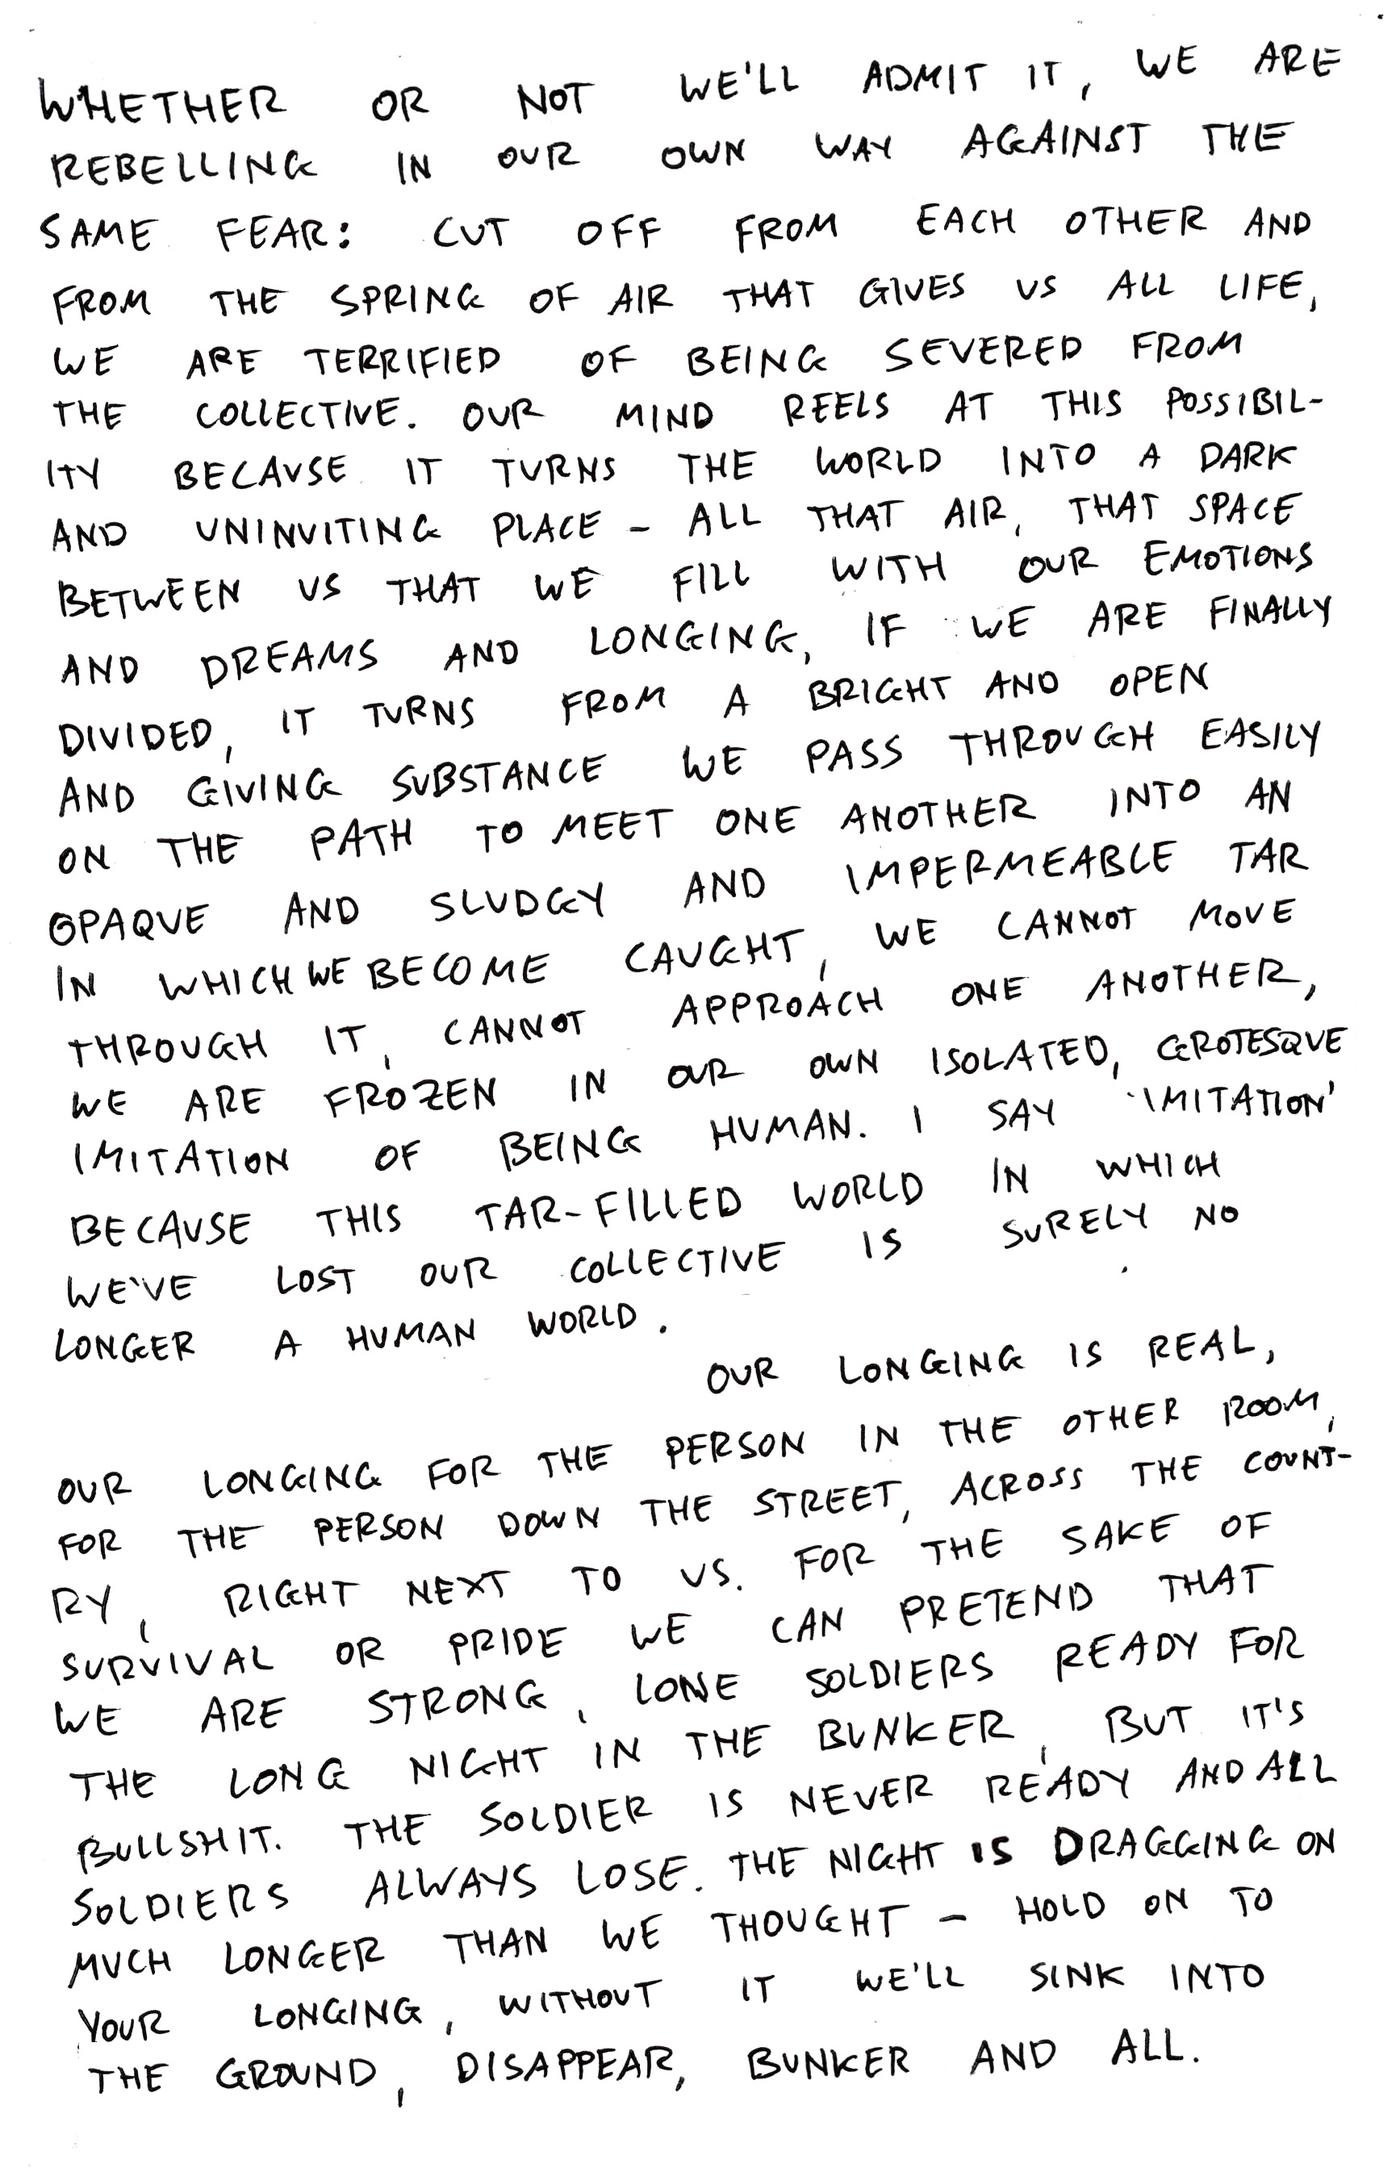 WHETHER OR NOT WE'LL ADMIT IT, WE ARE
REBELLING IN OUR OWN WAY AGAINST THE
SAME FEAR: CUT OFF FROM EACH OTHER AND
FROM THE SPRING OF AIR THAT GIVES US ALL LIFE,
WE ARE TERRIFIED OF BEING SEVERED FROM
THE COLLECTIVE. OUR MIND REELS AT THIS POSSIBIL-
ITY BECAUSE IT TURNS THE WORLD INTO A DARK
AND UNINVITING PLACE - ALL THAT AIR, THAT SPACE
BETWEEN US THAT WE FILL WITH OUR EMOTIONS
AND DREAMS AND LONGING, IF WE ARE FINALLY
DIVIDED, IT TURNS FROM A BRIGHT AND OPEN
AND GIVING SUBSTANCE WE PASS THROUGH EASILY
ON THE PATH TO MEET ONE ANOTHER INTO AN
OPAQUE AND SLUDGY AND IMPERMEABLE TAR
IN WHICH WE BECOME CAUGHT, WE CANNOT MOVE
THROUGH IT, CANNOT APPROACH ONE ANOTHER,
WE ARE FROZEN IN OUR OWN ISOLATED, GROTESQUE
IMITATION OF BEING HUMAN. I SAY 'IMITATION'
BECAUSE THIS TAR-FILLED WORLD IN WHICH
WE'VE LOST OUR COLLECTIVE IS SURELY NO
LONGER A HUMAN WORLD.
OUR LONGING IS REAL,
OUR LONGING FOR THE PERSON IN THE OTHER ROOM,
FOR THE PERSON DOWN THE STREET, ACROSS THE COUNT-
RY, RIGHT NEXT TO US. FOR THE SAKE OF
SURVIVAL OR PRIDE WE CAN PRETEND THAT
WE ARE STRONG, LONE SOLDIERS READY FOR
THE LONG NIGHT IN THE BUNKER, BUT IT'S
BULLSHIT. THE SOLDIER IS NEVER READY AND ALL
SOLDIERS ALWAYS LOSE. THE NIGHT IS DRAGGING ON
MUCH LONGER THAN WE THOUGHT - HOLD ON TO
YOUR LONGING, WITHOUT IT WE'LL SINK INTO
THE GROUND, DISAPPEAR, BUNKER AND ALL.